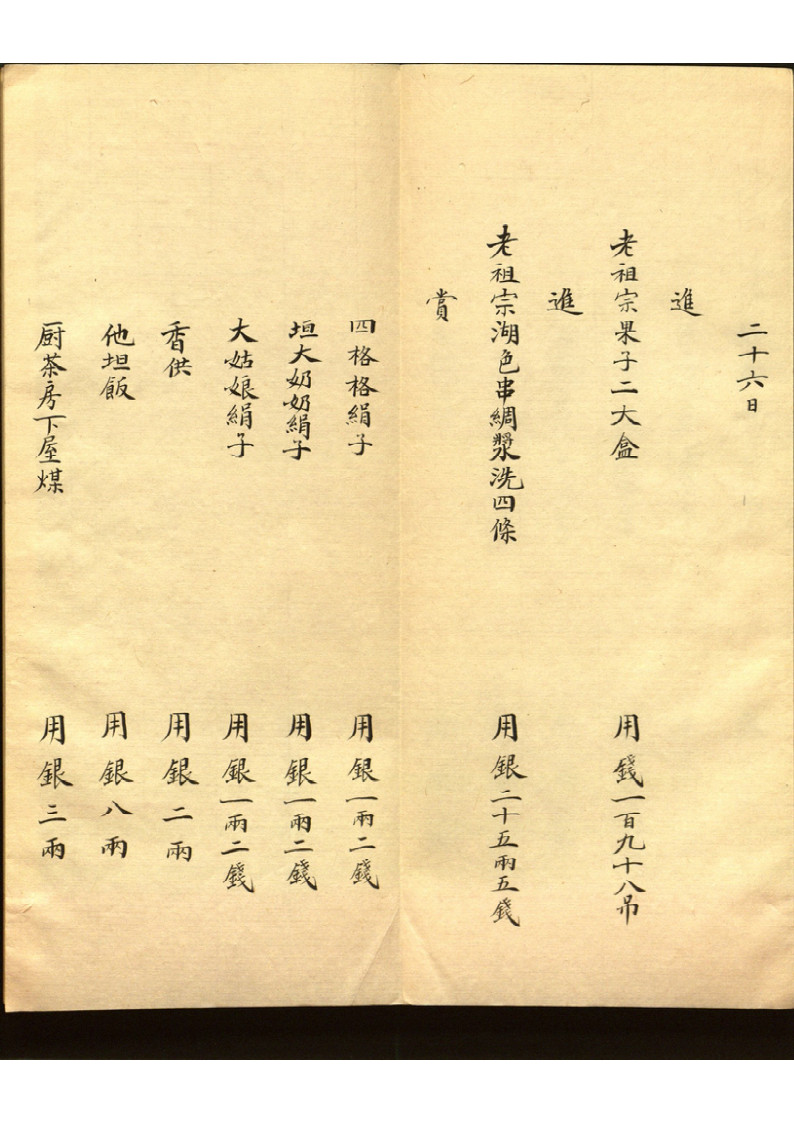 二十六日
進
老祖宗果子二大盒 用錢一百九十八吊
進
老祖宗湖色串綢漿洗四條 用銀二十五兩五錢
賞
四格格絹子 用銀一兩二錢
垣大奶奶絹子 用銀一兩二錢
大姑娘絹子 用銀一兩二錢
香供 用銀二兩
他坦飯 用銀八兩
厨茶房下屋煤 用銀三兩